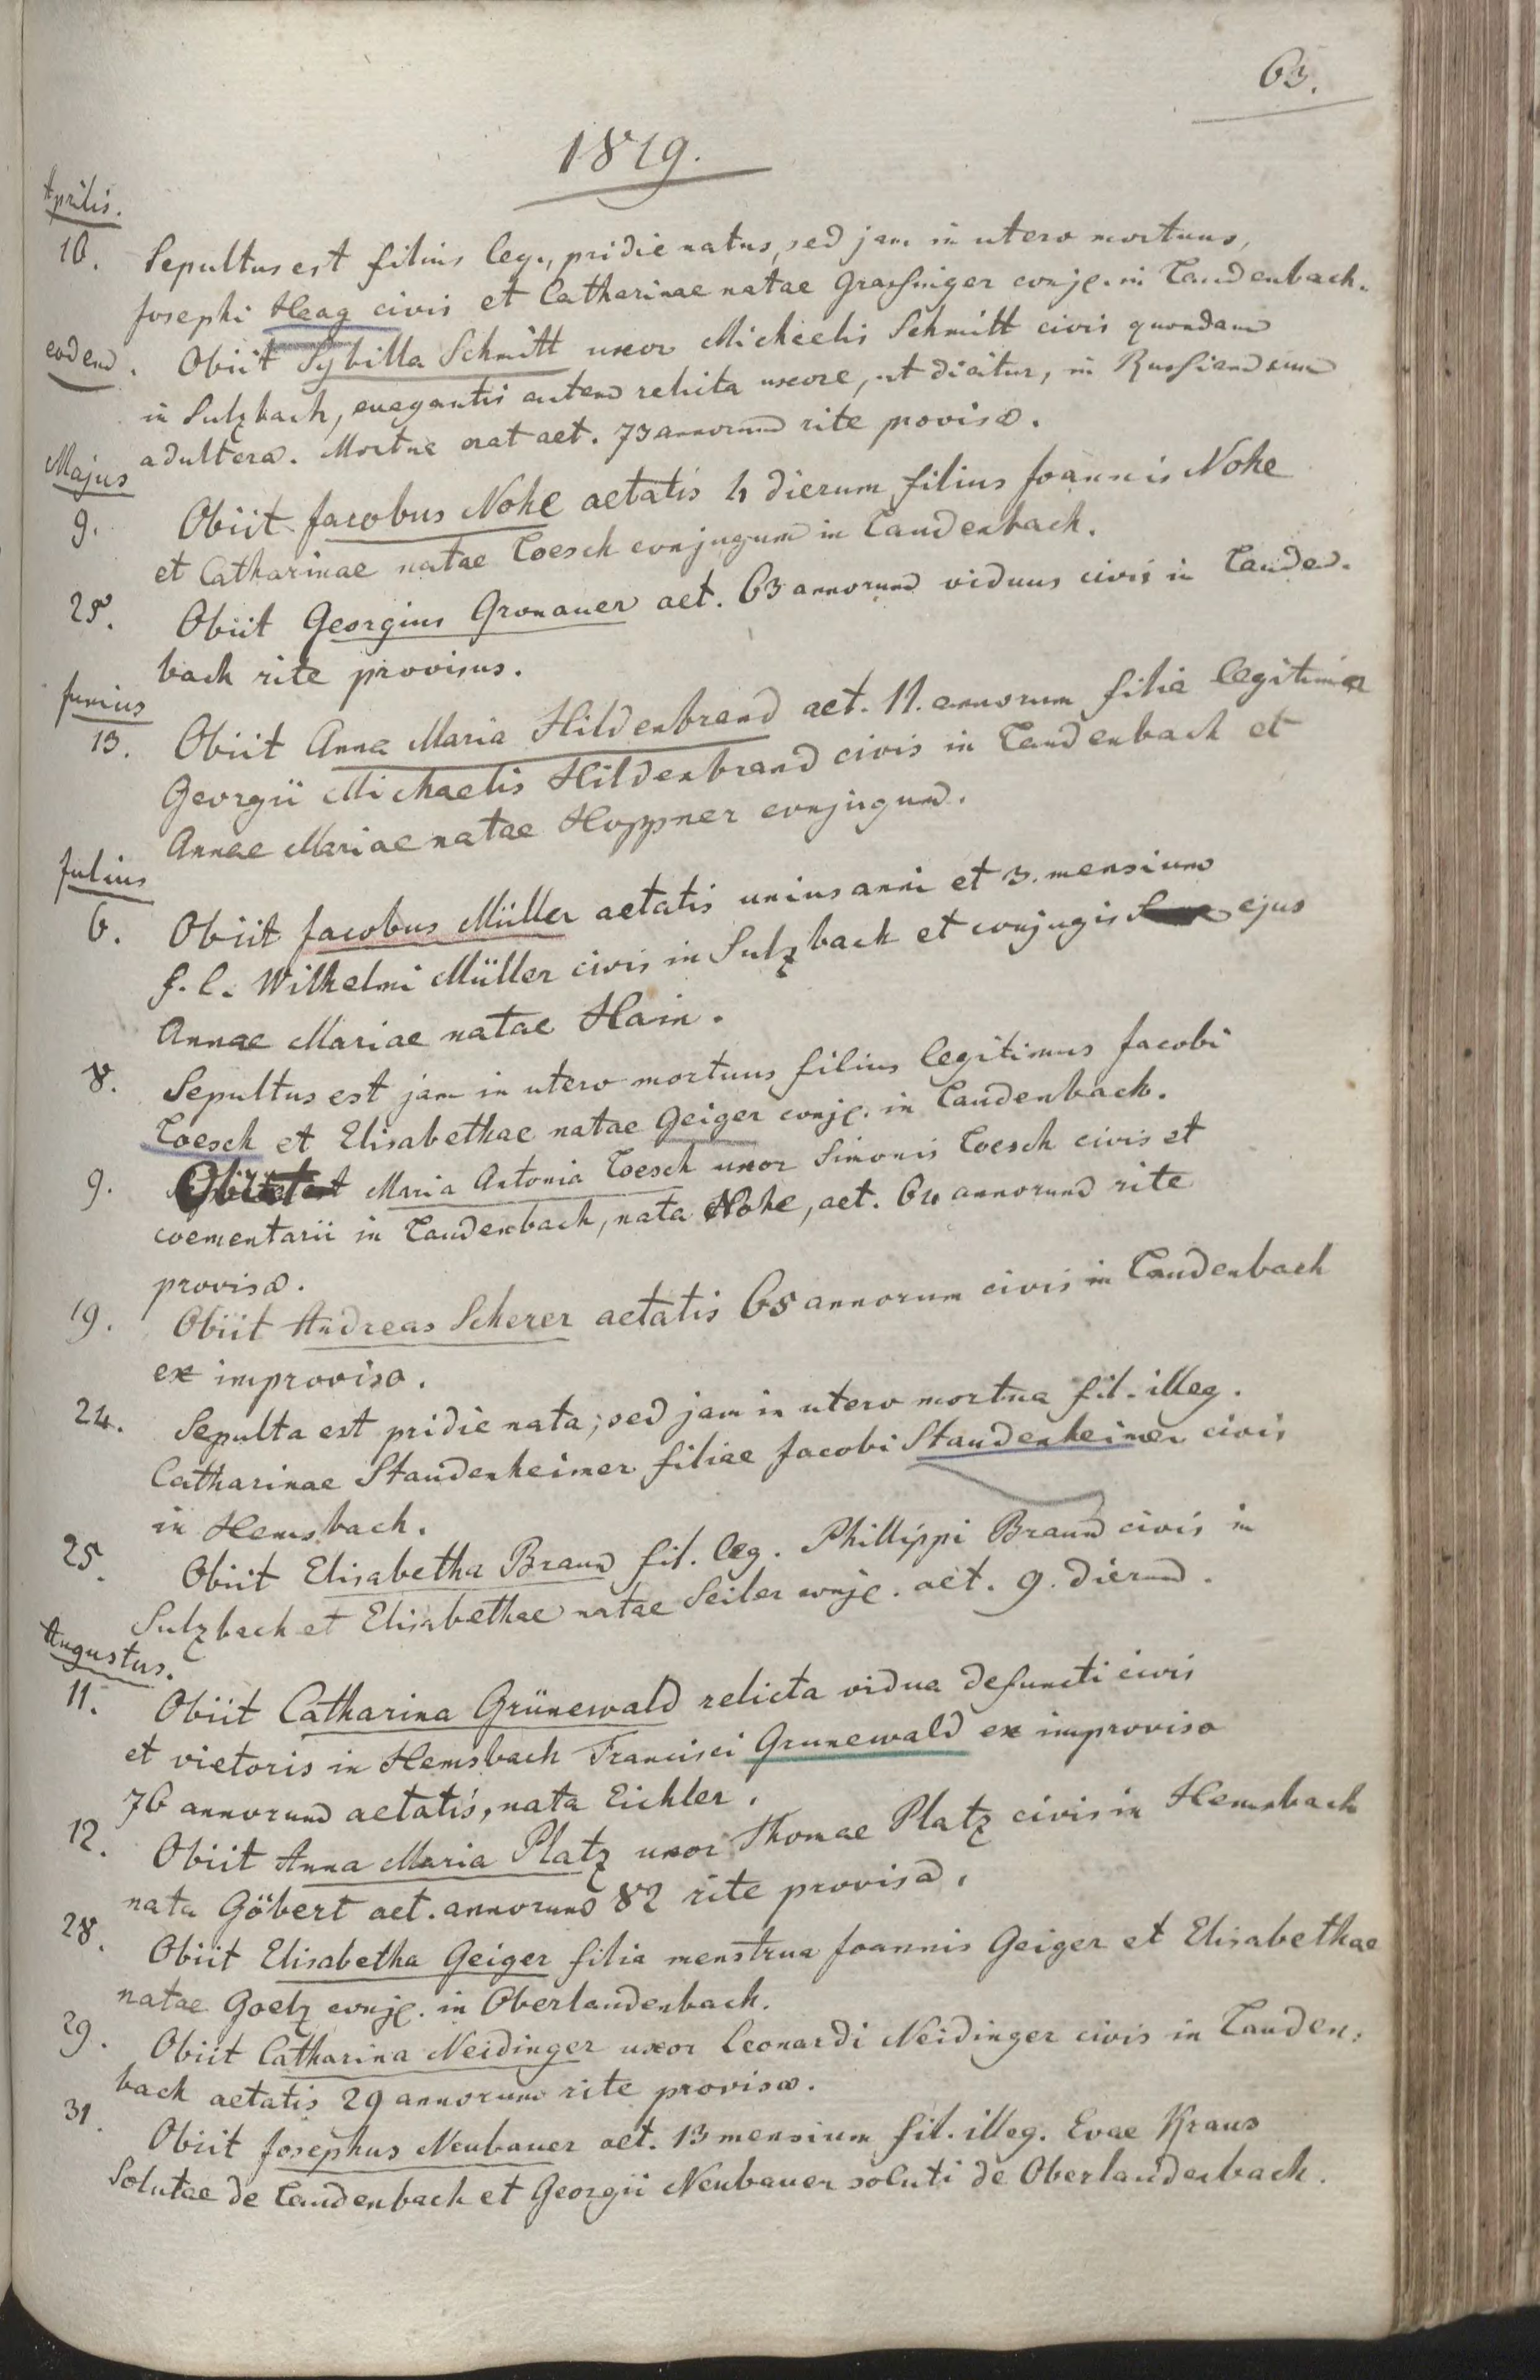 63.
1819.
Aprilis.
10. Sepultus est filius leg., pridie natus, sed jam in utero mortuus,
Josephi Heag civis et Catharinae natae Grassinger conjg. in Laudenbach.
eodem. Obiit Sybilla Schmitt uxor Michaelis Schmitt civis quondam
in Sulzbach, evagantis autem relicta uxore, ut dicitur, in Russiam cum
adultera. Mortua erat aet. 73 annorum rite provisa.
Majus
9. Obiit Jacobus Nohe aetatis 4 dierum filius Joannis Nohe
et Catharinae natae Loesch conjugum in Laudenbach.
25. Obiit Georgius Gronauer aet. 63 annorum viduus civis in Lauden-
bach rite provisus.
Junius
13. Obiit Anna Maria Hildenbrand aet. 11. annorum filia legitima
Georgii Michaelis Hildenbrand civis in Laudenbach et
Annae Mariae natae Hoppner conjugum.
Julius
6. Obiit Jacobus Müller aetatis unius anni et 3. mensium
f. l. Wilhelmi Müller civis in Sulzbach et conjugis ejus
Annae Mariae natae Hain.
8. Sepultus est jam in utero mortuus filius legitimus Jacobi
Loesch et Elisabethae natae Geiger conjg. in Laudenbach.
9. Obiit Maria Antonia Loesch uxor Simonis Loesch civis et
coementarii in Laudenbach, nata Nohe, aet. 64 annorum rite
provisa.
19. Obiit Andreas Scherer aetatis 65 annorum civis in Laudenbach
ex improviso.
24. Sepulta est pridie nata; sed jam in utero mortua fil. illeg.
Catharinae Staudenheimer filiae Jacobi Staudenheimer civis
in Hemsbach.
25. Obiit Elisabetha Braun fil. leg. Phillippi Braun civis in
Sulzbach et Elisabethae natae Seiler conjg. aet. 9. dierum.
Augustus.
11. Obiit Catharina Grünewald relicta vidua defuncti civis
et vietoris in Hemsbach Francisci Grunewald ex improviso
76 annorum aetatis, nata Eichler.
12. Obiit Anna Maria Platz uxor Thomae Platz civis in Hemsbach
nata Göbert aet. annorum 82 rite provisa.
28. Obiit Elisabetha Geiger filia menstrua Joannis Geiger et Elisabethae
natae Goelz conjg. in Oberlaudenbach.
29. Obiit Catharina Neidinger uxor Leonardi Neidinger civis in Lauden-
bach aetatis 29 annorum rite provisa.
31. Obiit Josephus Neubauer aet. 13 mensium fil. illeg. Evae Kraus
Solutae de Laudenbach et Georgii Neubauer soluti de Oberlaudenbach.